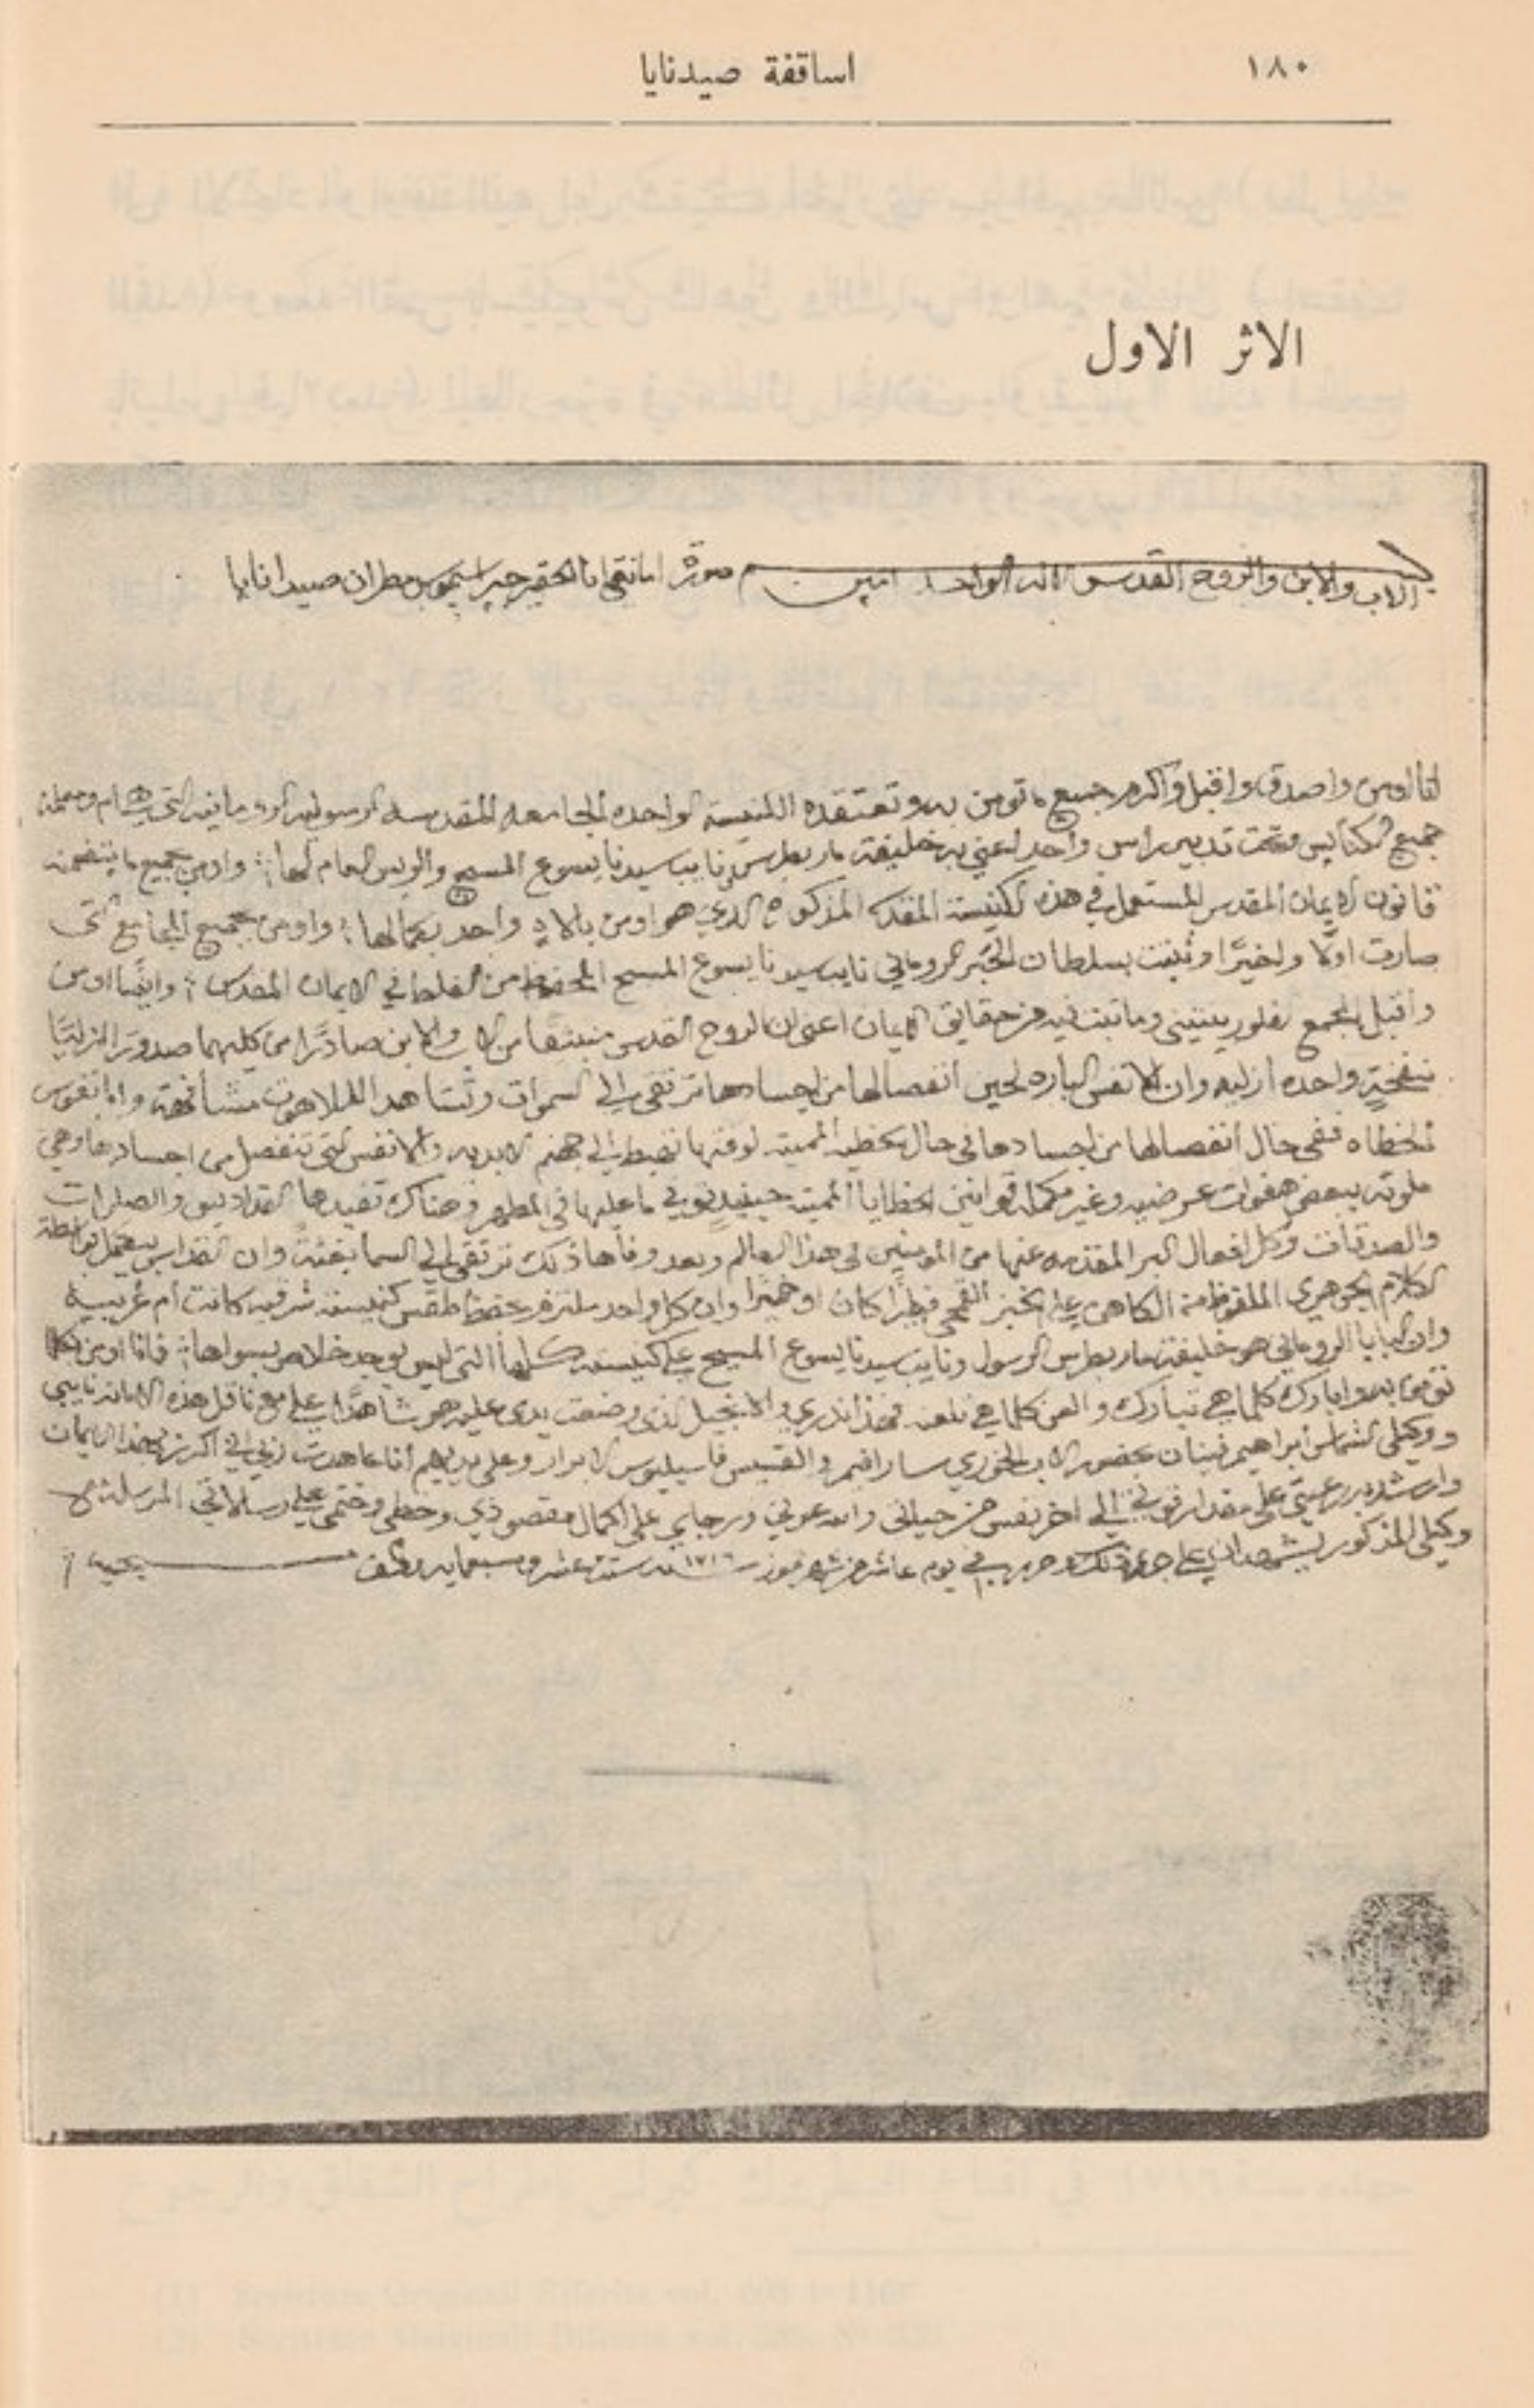 ١٨٠
اساقفة صيدنايا
الاثر الاول
الاب والابن والروح القدس الاله الواحد امين صورة امانتي انا الحقير جيراسيموس مطران صيدانايا
انا اومن واصدق واقبل واكرم جميع ما تومن به وتعتقده الكنيسة الواحده الجامعه المقدسه الرسوليه الرومانيه التي هي ام ومعلمة
جميع الكنايس وتحت تدبير راس واحد اعني به خليفة مار بطرس نايب سيدنا يسوع المسيح والريس العام لها واومن بجميع ما يتضمنه
قانون الايمان المقدس المستعمل في هذه الكنيسة المقدسه المذكوره الذي هو اومن بالاه واحد بكمالها واومن بجميع المجامع التي
صارت اولًا واخيرًا وثبتت بسلطان الحبر الروماني نايب سيدنا يسوع المسيح المحفوظ من الغلط في الايمان المقدس وايضًا اومن
واقبل المجمع الفلورينتيني وما تبت فيه من حقايق الايمان اعني ان الروح القدس منبثقًا من الاب والابن صادرًا من كليهما صدورًا ازليًا
بنفخةٍ واحده ازليه وان الانفس الباره لحين انفصالها من اجسادها ترتقي الى السموات وتشاهد اللاهوت مشافهة واما نفوس
الخطاه ففي حال انفصالها من اجسادها في حال الخطيه المميته لوقتها تهبط الى جهنم الابديه والانفس التي تنفصل من اجسادها وهي
ملوته ببعض هفوات عرضيه وغير مكمله قوانين الخطايا المميته حينيدٍ توفي ما عليها في المطهر وهناك تفيدها القداديس والصلوات
والصدقات وكل افعال البر المقدمه عنها من المومنين في هذا العالم وبعد وفاها ذلك ترتقي الى السما بغتةً وان القداس يكمل بواسطة
الكلام الجوهري الملفوظ من الكاهن على الخبز القمحي فطيرًا كان او خميرًا وان كل واحد ملتزم بحفظ طقس كنيسته شرقيه كانت ام غربيه
وان البابا الروماني هو خليفة مار بطرس الرسول ونايب سيدنا يسوع المسيح على كنيسته كلها التي ليس يوجد خلاص بسواها فانا اومن كما
تومن به وابارك كلما هي تبارك والعن كلما هي تلعن فهذا نذري والانجيل الذي وضعت يدي عليه هو شاهدًا علي مع ناقل هذه الامانه نايبي
ووكيلي الشماس ابراهيم بحضور الاب الخوري سارافيم والقسيس فاسيليوس الابرار وعلى يديهم انا عاهدت ربي اني اكرز بهذا الايمان
وارشد به رعيتي على مقدار قوتي الى اخر نفس من حياتي والله عوني ورجاي على اكمال مقصودي وخطي وختمي على رسالاتي المرسله مع
وكيلي المذكور يشهدان علي بذلك وحرر في يوم عاشر من شهر تموز سنة ١٧١٦ ستة عشر وسبعمايه والف مسيحيه